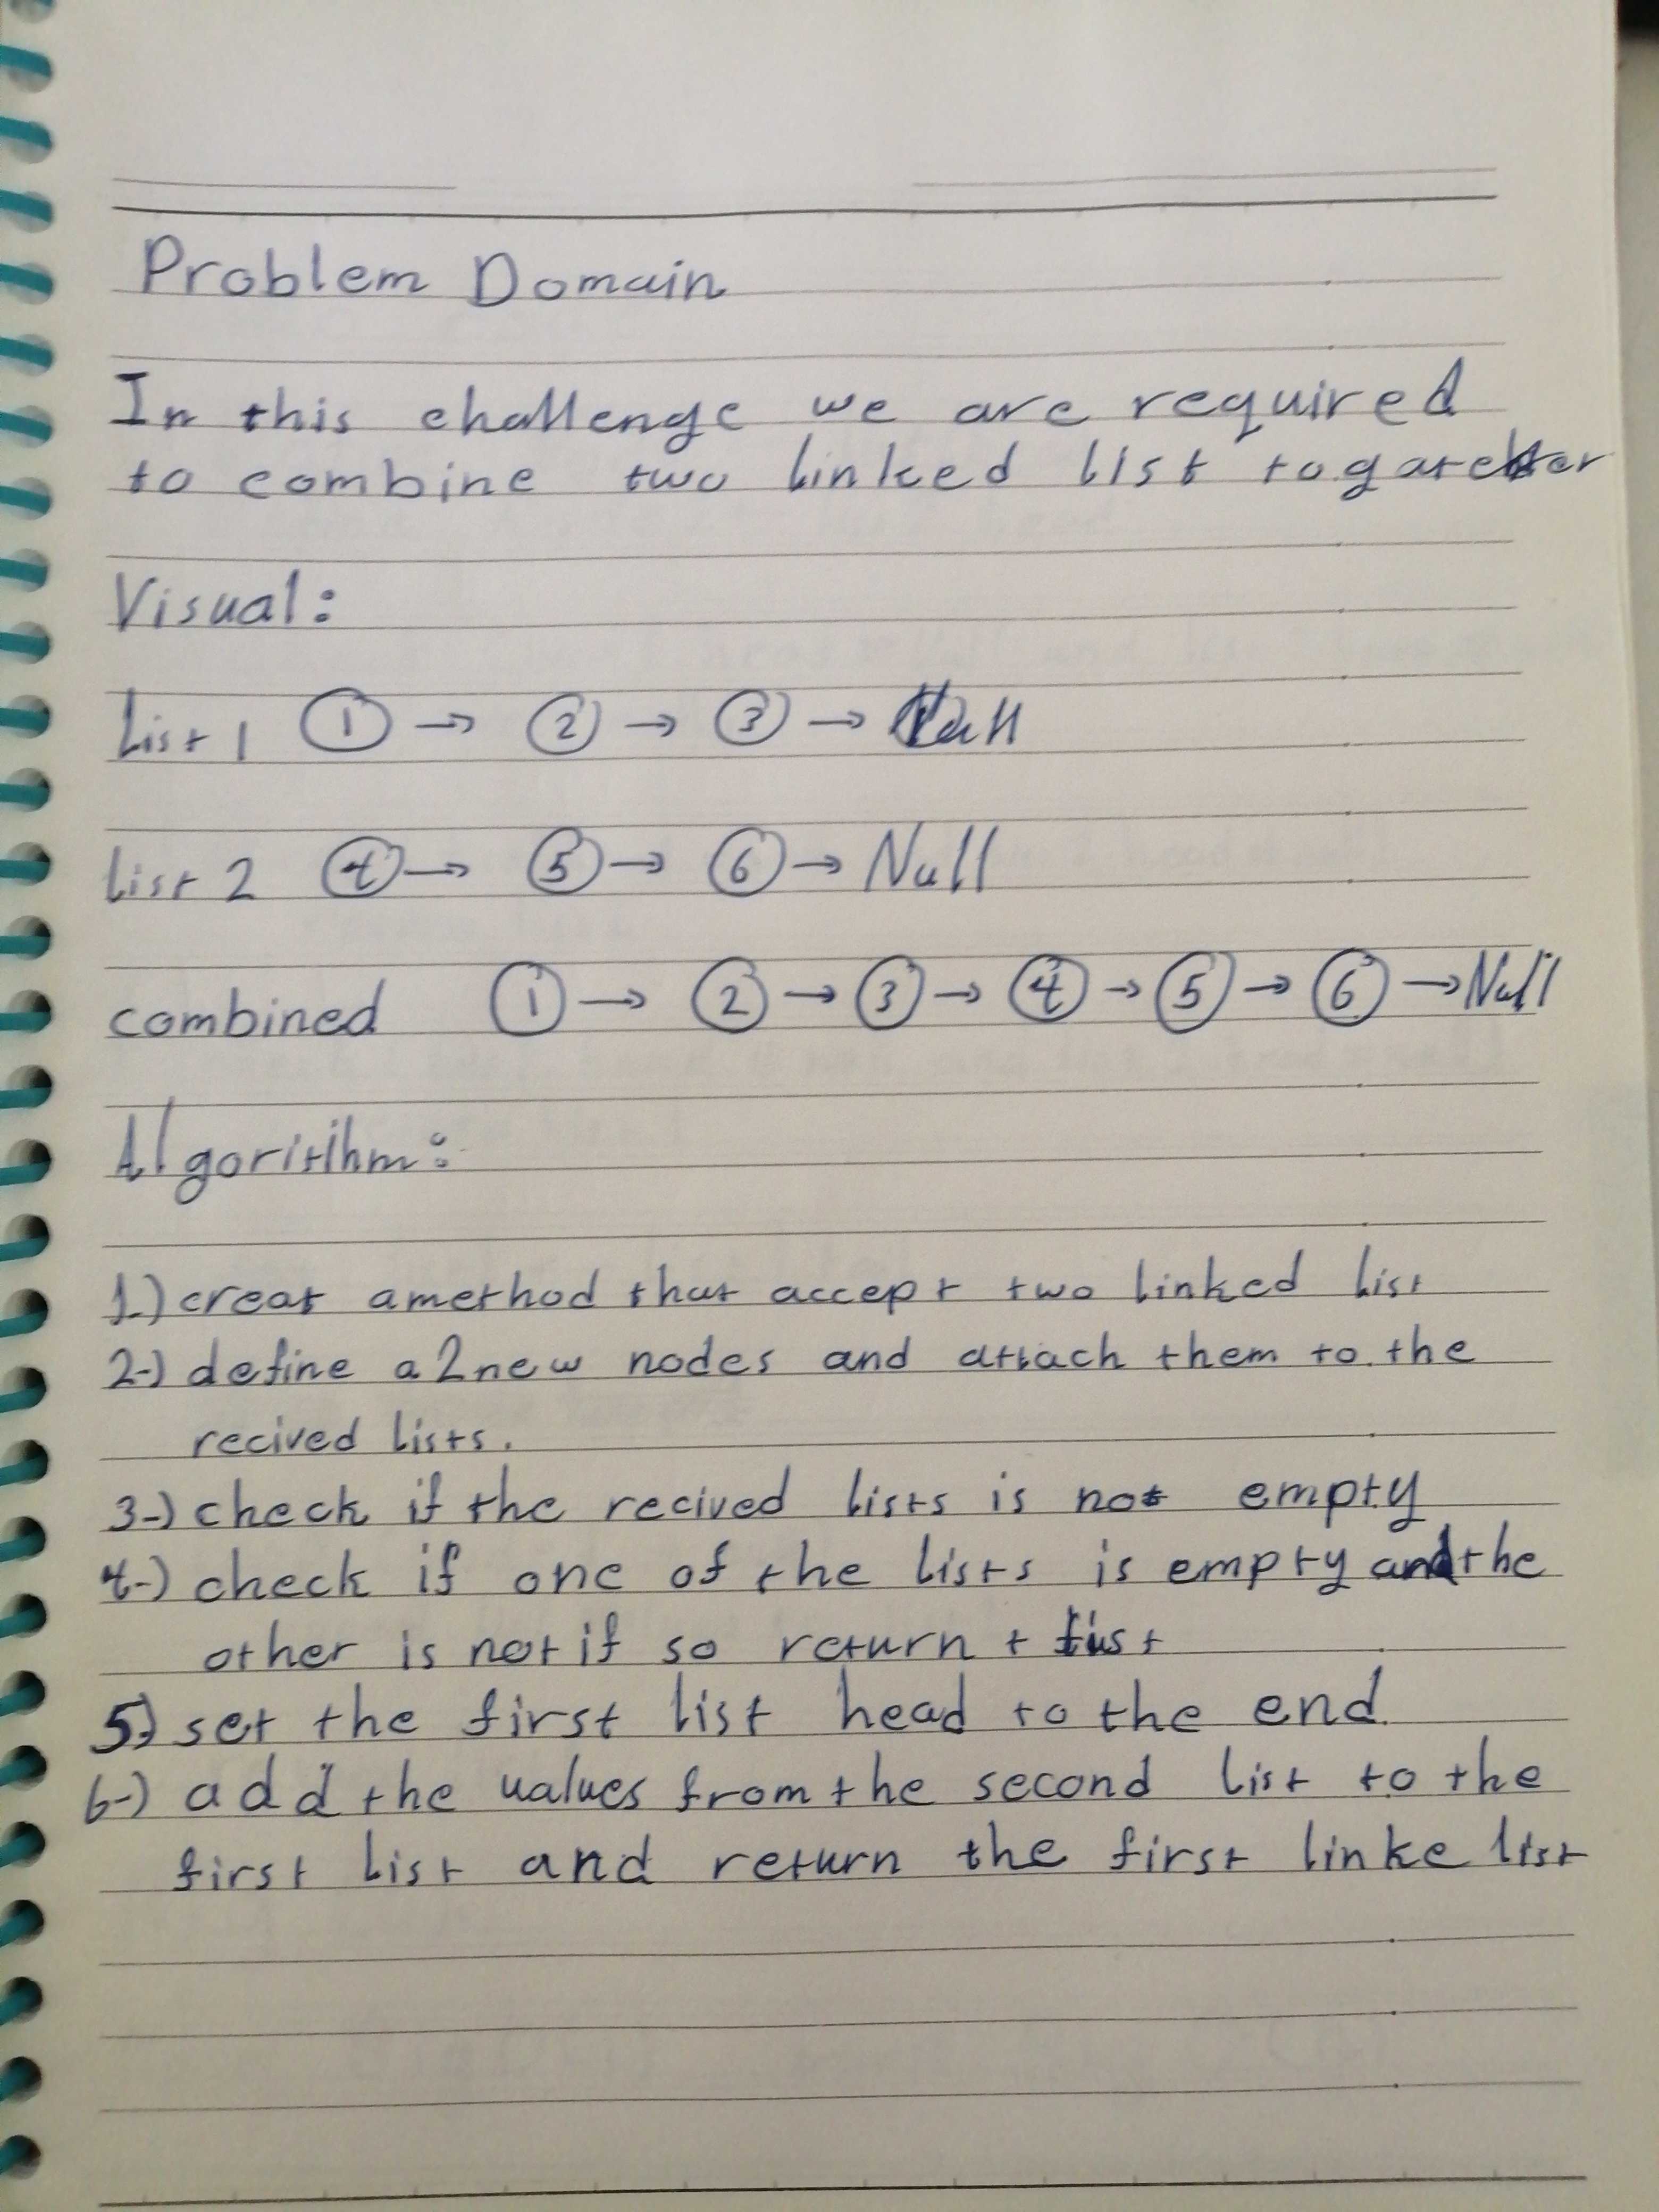 Problem Domain
In this challenge we are required
to combine two linked list
Visual:
List 1 1 → 2 → 3 → Null
List 2 4 → 5 → 6 → Null
combined 1 → 2 → 3 → 4 → 5 → 6 → Null
Algorithm:
1-) creat a method that accept two linked list
2-) define a 2 new nodes and attach them to the
recived lists.
3-) check if the recived lists is not empty
4-) check if one of the lists is empty and the
other is not if so return
5-) set the first list head to the end.
6-) add the values from the second list to the
first list and return the first linke list